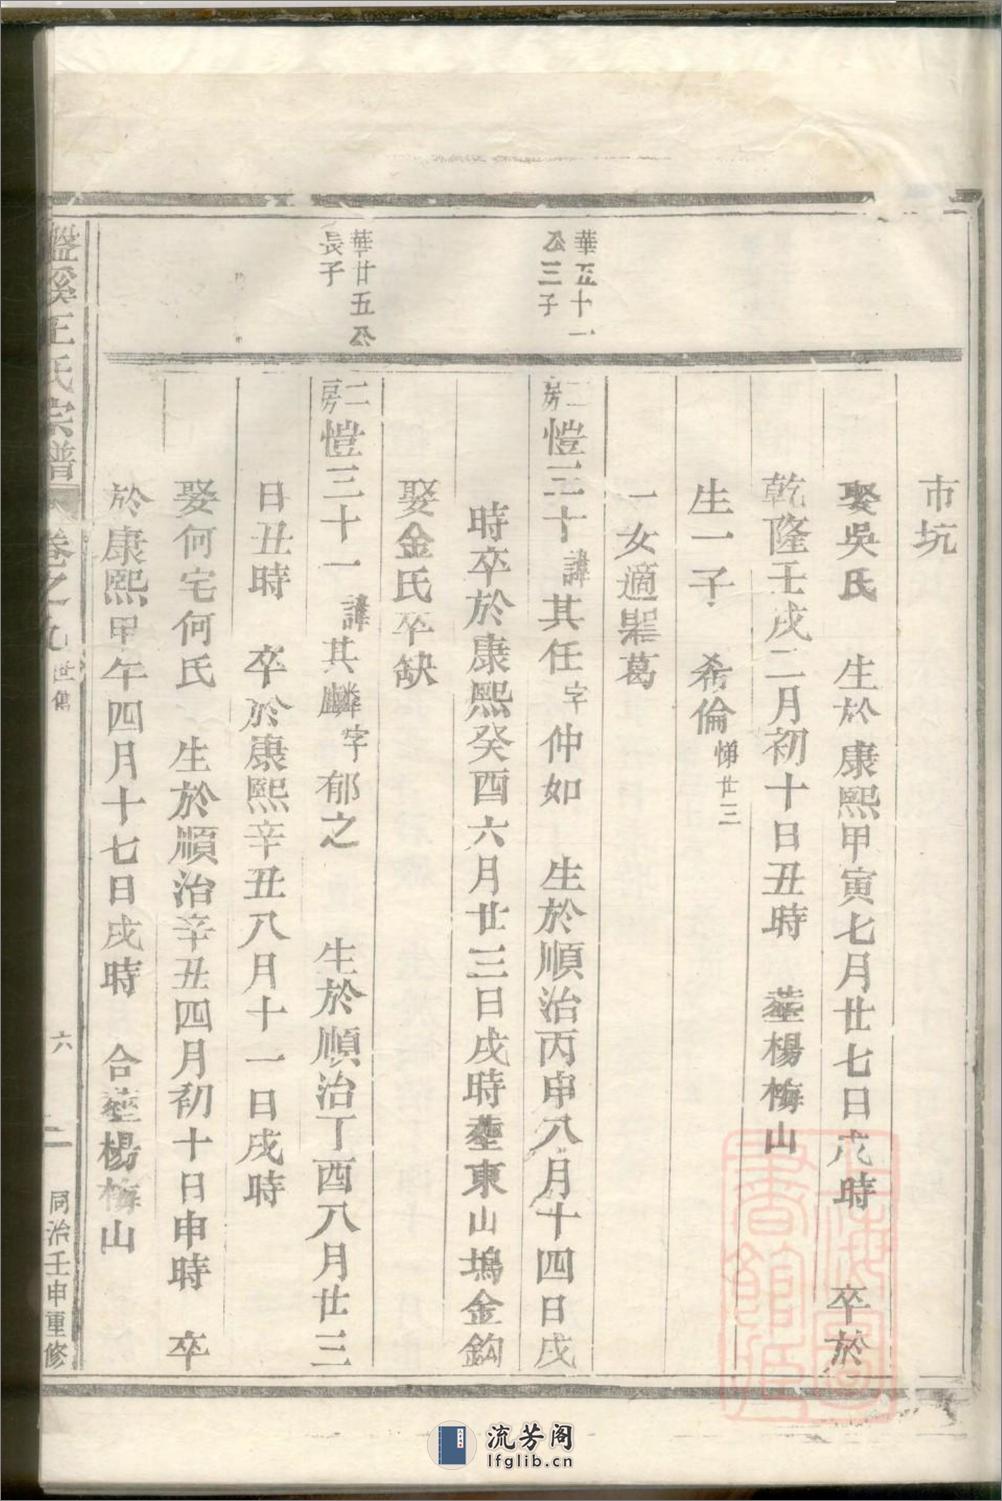 市坑
娶吳氏 生於康熙甲寅七月廿七日戌時 卒於
乾隆壬戌二月初十日丑時 塟楊梅山
生一子 希倫悌廿三
一女適葛
華五十一
公三子
二房愷三十諱其任字仲如 生於順治丙申八月十四日戌
時卒於康熙癸酉六月廿三日戌時塟東山塢金鈎
娶金氏卒缺
華廿五公
長子
二房愷三十一諱其麟字郁之 生於順治丁酉八月廿三
日丑時 卒於康熙辛丑八月十一日戌時
娶何宅何氏 生於順治辛丑四月初十日申時 卒
於康熙甲午四月十七日戌時 合塟楊梅山
溪王氏宗譜 卷之九 世傳 六 同治壬申重修
上海圖書館藏
流芳阁
lfglib.cn